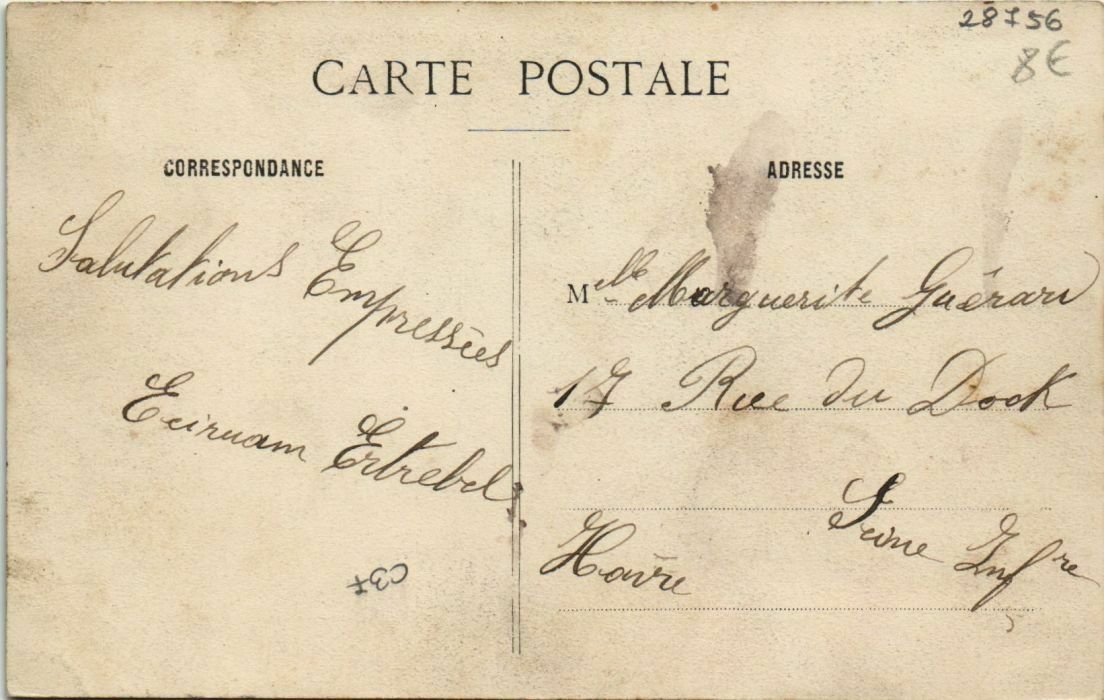 28756
8€
CARTE POSTALE
CORRESPONDANCE
Salutations Empressées
Eciruam Ertrebel
C37
ADRESSE
Melle Marguerite Guérard
17 Rue du Dock
Seine Infre
Havre